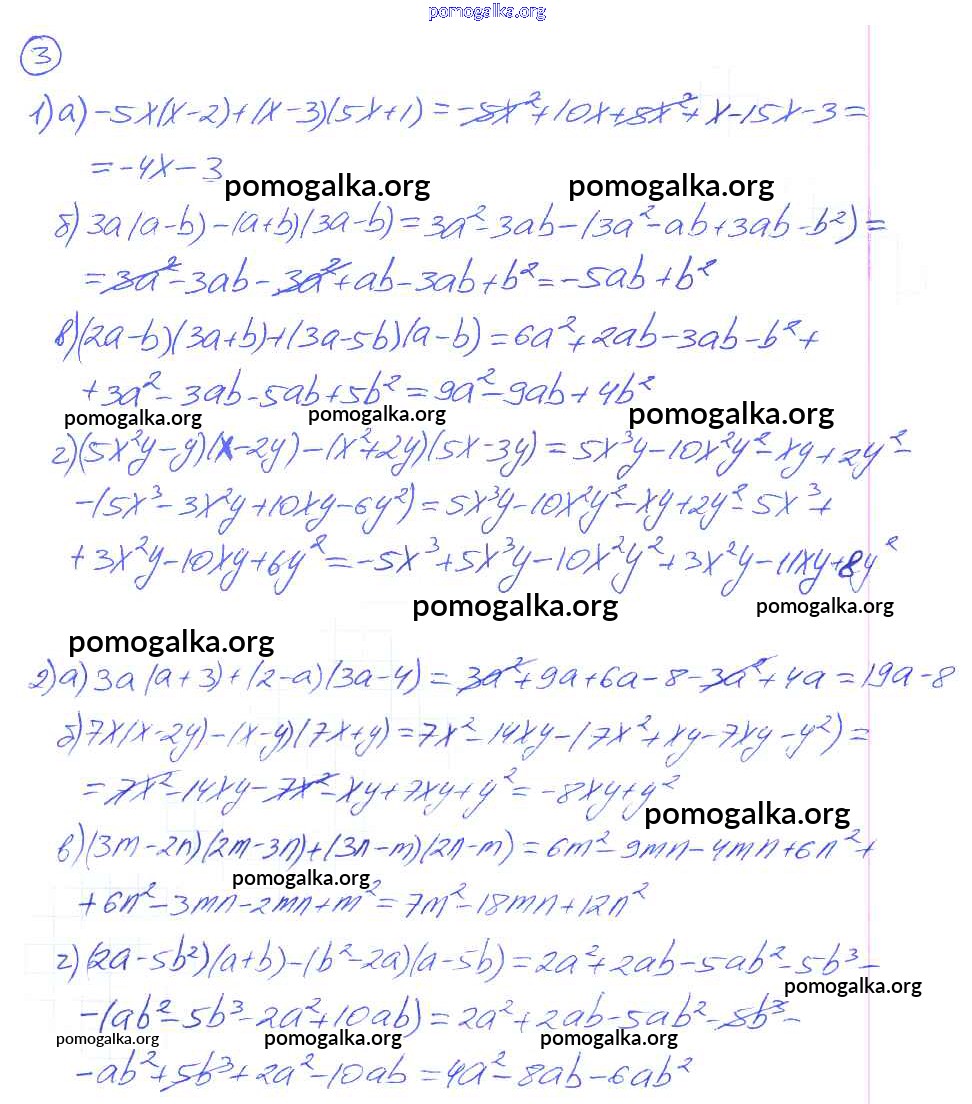 pomogalka.org
3
1) а) -5x(x-2)+(x-3)(5x+1) = -5x²+10x+5x²+x-15x-3 =
= -4x-3
pomogalka.org pomogalka.org
б) 3a(a-b)-(a+b)(3a-b) = 3a²-3ab-(3a²-ab+3ab-b²) =
= 3a²-3ab-3a²+ab-3ab+b² = -5ab+b²
в) (2a-b)(3a+b)+(3a-5b)(a-b) = 6a²+2ab-3ab-b²+
+3a²-3ab-5ab+5b² = 9a²-9ab+4b²
pomogalka.org pomogalka.org pomogalka.org
г) (5x²y-y)(x-2y)-(x²+2y)(5x-3y) = 5x³y-10x²y²-xy+2y²-
-(5x³-3x²y+10xy-6y²) = 5x³y-10x²y²-xy+2y²-5x³+
+3x²y-10xy+6y² = -5x³+5x³y-10x²y²+3x²y-11xy+8y²
pomogalka.org pomogalka.org
pomogalka.org
2) а) 3a(a+3)+(2-a)(3a-4) = 3a²+9a+6a-8-3a²+4a = 19a-8
б) 7x(x-2y)-(x-y)(7x+y) = 7x²-14xy-(7x²+xy-7xy-y²) =
= 7x²-14xy-7x²-xy+7xy+y² = -8xy+y²
pomogalka.org
в) (3m-2n)(2m-3n)+(3n-m)(2n-m) = 6m²-9mn-4mn+6n²+
pomogalka.org
+6n²-3mn-2mn+m² = 7m²-18mn+12n²
г) (2a-5b²)(a+b)-(b²-2a)(a-5b) = 2a²+2ab-5ab²-5b³-
pomogalka.org
-(ab²-5b³-2a²+10ab) = 2a²+2ab-5ab²-5b³-
pomogalka.org pomogalka.org pomogalka.org
-ab²+5b³+2a²-10ab = 4a²-8ab-6ab²